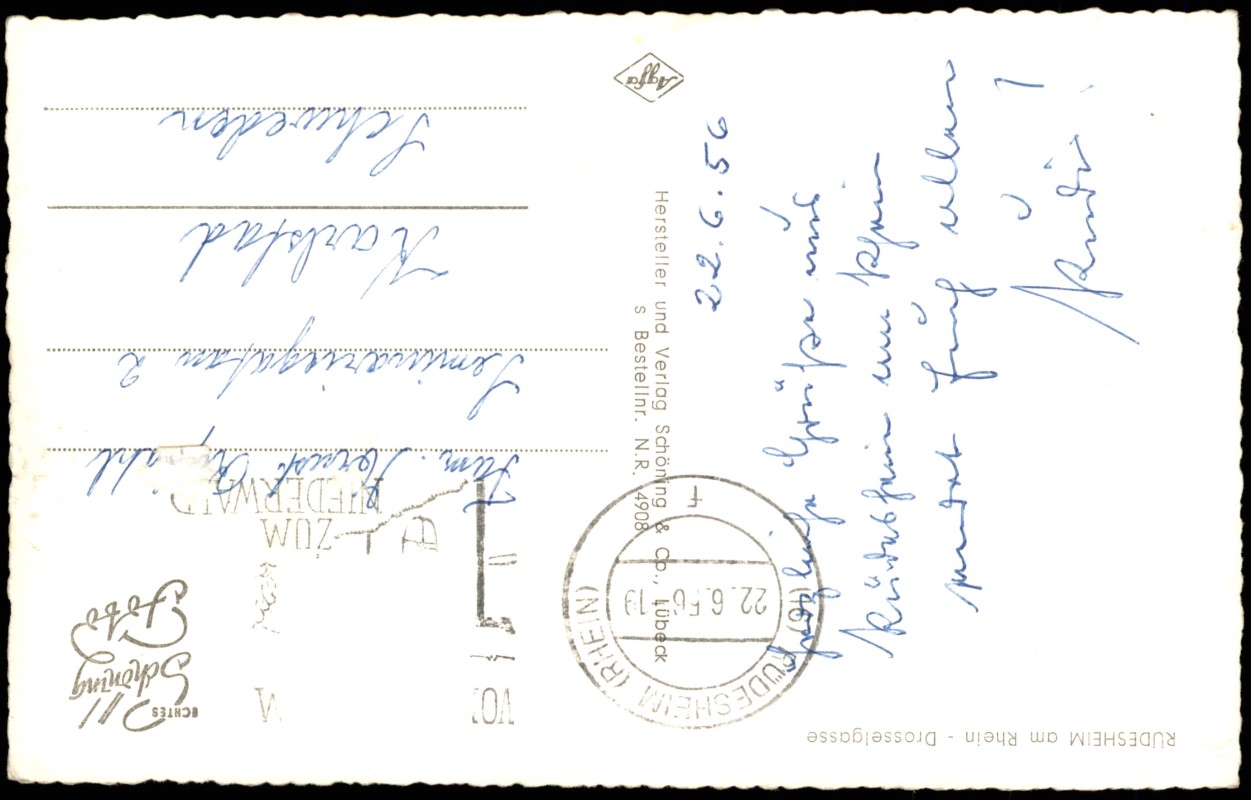 RÜDESHEIM am Rhein - Drosselgasse
22.6.56
Herzliche Grüße aus
Rüdesheim am Rhein
sendet Euch allen
Rudi
Hersteller und Verlag Schöning & Co., Lübeck
s Bestellnr. N.R. 4908
Agfa
(16) RÜDESHEIM (RHEIN)
22.6.56-19
f
ZUM
NIEDERWALD
ECHTES
Schöning
Foto
Fam.
Seminariegatan 2
Karlstad
Schweden